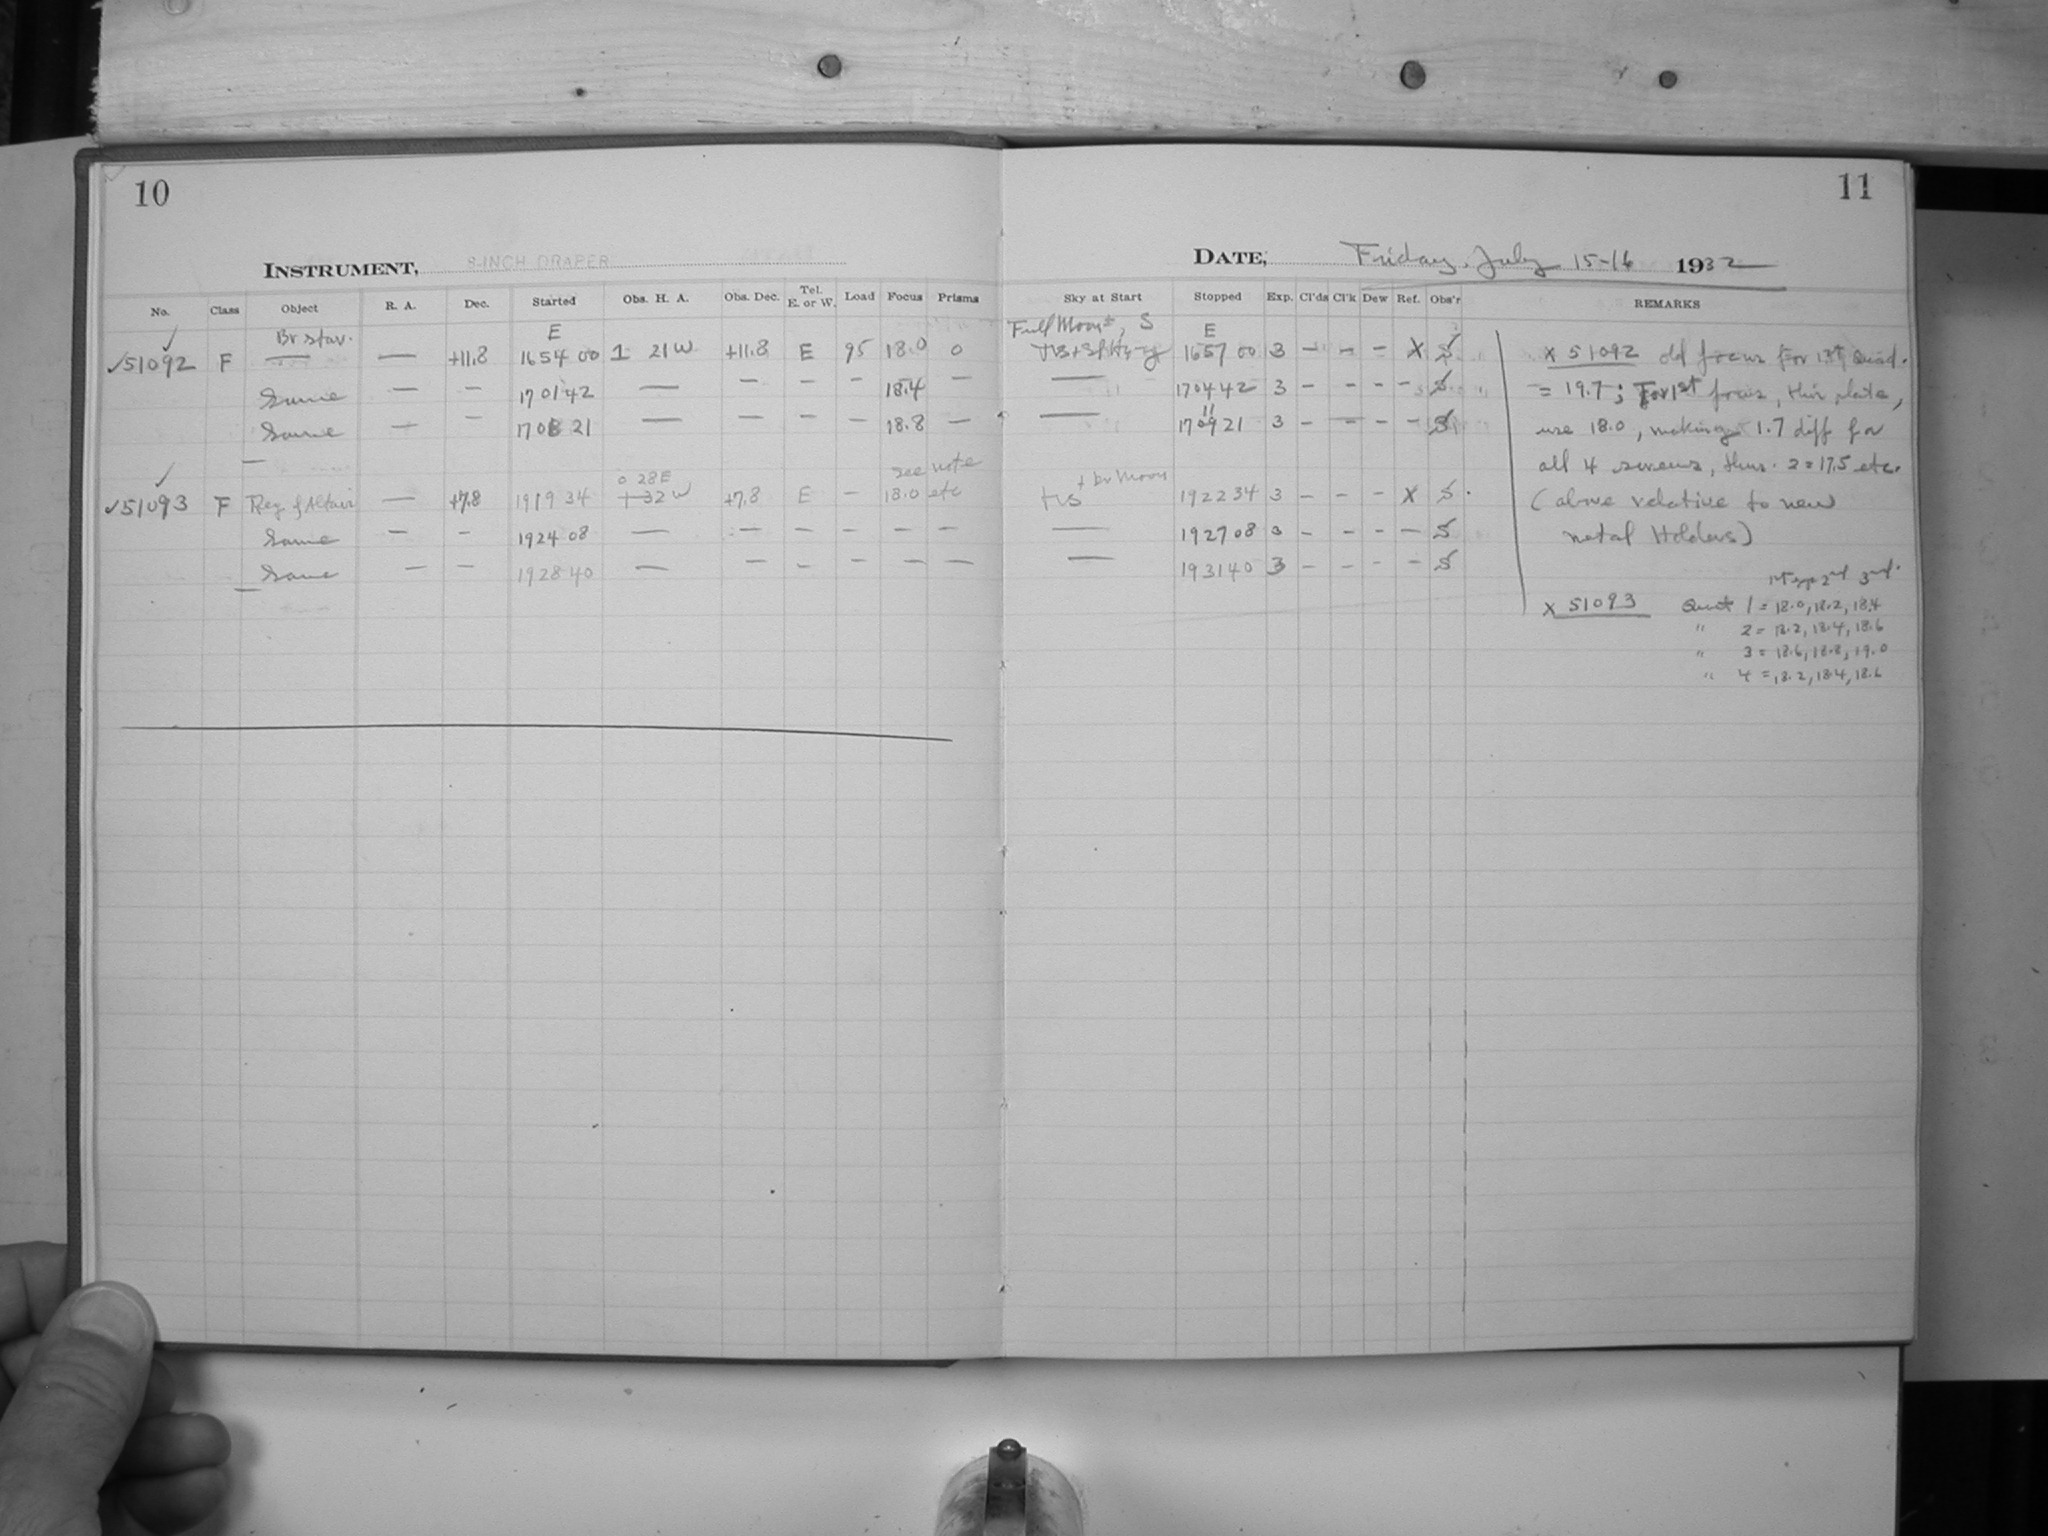 10
INSTRUMENT, 8-INCH DRAPER
No. Class Object R. A. Dec. Started Obs. H. A. Obs. Dec. Tel. E. or W. Load Focus Prisms
Br star. E
✓51092 F — — +11.8 16 54 00 1 21 W +11.8 E 95 18.0 0
Same — — 17 01 42 — — — — 18.4 —
Same — — 17 06 21 — — — — 18.8 —
0 28 E see note
✓51093 F Reg of Altair — +7.8 19 19 34 +32 W +7.8 E — 18.0 etc
Same — — 19 24 08 — — — — — —
Same — — 19 28 40 — — — — — —
11
DATE, Friday, July 15-16 1932
Sky at Start Stopped Exp. Cl'ds Cl'k Dew Ref. Obs'r REMARKS
Full Moon, S E
16 57 00 3 — — — X S
— 17 04 42 3 — — — — S
— 17 09 21 3 — — — — S
+ br Moon
HS 19 22 34 3 — — — X S
— 19 27 08 3 — — — — S
— 19 31 40 3 — — — — S
X 51092 old focus for 1st Quad.
= 19.7; For 1st focus, this plate,
use 18.0, making 1.7 diff for
all 4 screws, thus. 2 = 17.5 etc.
(above relative to new
metal Holders)
1st exp 2nd 3rd
X 51093 Quad 1 = 18.0, 18.2, 18.4
" 2 = 18.2, 18.4, 18.6
" 3 = 18.6, 18.8, 19.0
" 4 = 18.2, 18.4, 18.6